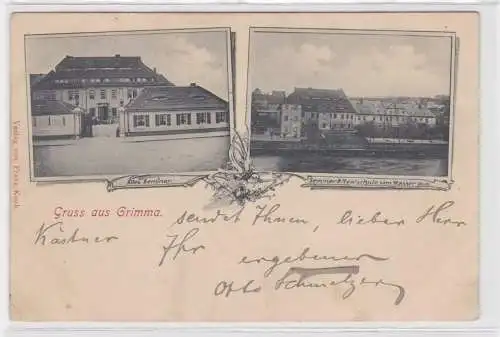 Altes Seminar
Seminar & Realschule vom Wasser aus
Verlag von Franz Koch
Gruss aus Grimma.
sendet Ihnen, lieber Herr
Kästner
Ihr ergebener
Otto Schmelzer